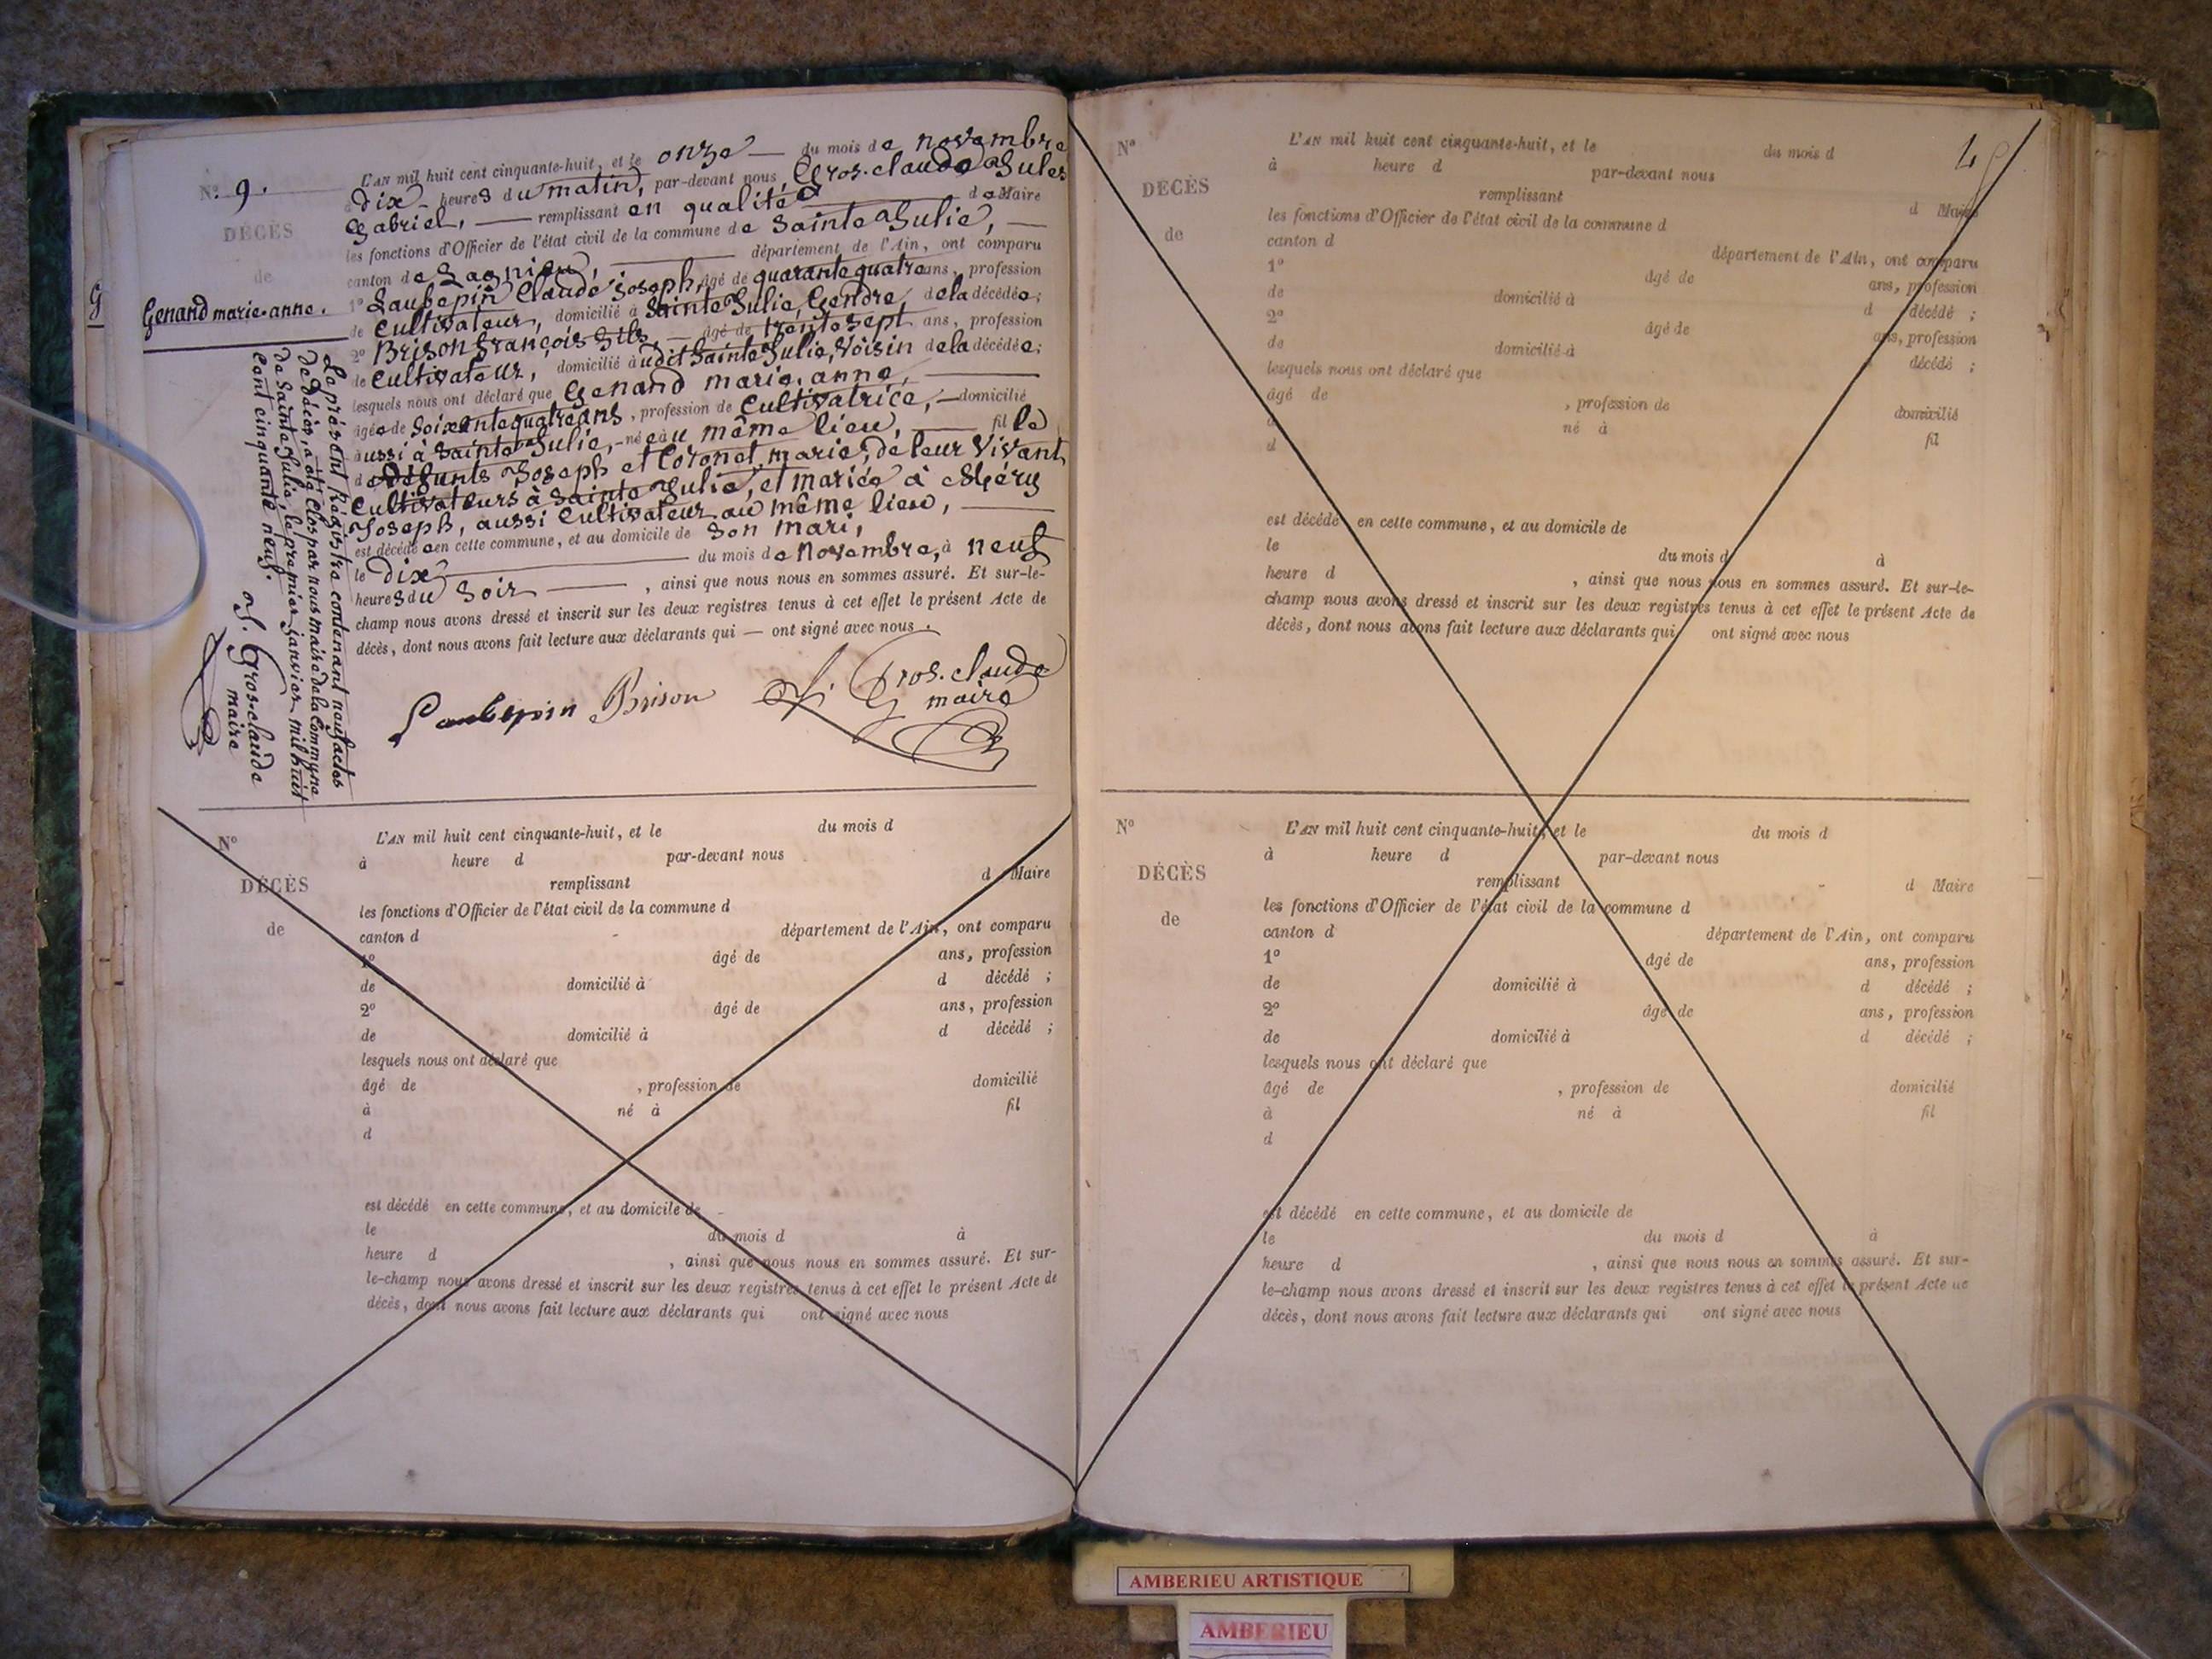 N° 9.
DÉCÈS
de
G
Genand marie-anne.
L'AN mil huit cent cinquante-huit, et le onze — du mois de novembre
à dix heures du matin, par-devant nous Gros-claude Jules
Gabriel, — remplissant en qualité de Maire
les fonctions d'Officier de l'état civil de la commune de Sainte Julie, —
canton de Lagnieu, — département de l'Ain, ont comparu
1° Laubepin Claude Joseph, âgé de quarante quatre ans, profession
de Cultivateur, domicilié à Sainte Julie, Gendre, de la décédée;
2° Brison françois fils, — âgé de trente sept ans, profession
de Cultivateur, domicilié audit Sainte Julie, Voisin de la décédée;
lesquels nous ont déclaré que Genand marie, anne, —
âgée de Soixante quatre ans, profession de Cultivatrice, — domicilié
aussi à Sainte Julie, — née au même lieu, — fille
de défunts Joseph et Coronet, marie, de leur Vivant,
Cultivateurs à Sainte Julie, et mariée à
Joseph, aussi Cultivateur au même lieu, —
est décédée en cette commune, et au domicile de son mari,
le dix — du mois de Novembre, à neuf
heures du Soir — , ainsi que nous nous en sommes assuré. Et sur-le-
champ nous avons dressé et inscrit sur les deux registres tenus à cet effet le présent Acte de
décès, dont nous avons fait lecture aux déclarants qui — ont signé avec nous.
Laubepin Brison J. G Gros-claude
maire
Le présent Régistre contenant neuf actes
de Décès, a été Clos par nous maire de la Commune
de Sainte Julie, le premier janvier mil huit
Cent cinquante neuf.
J. Gros-claude
maire
N°
DÉCÈS
de
L'AN mil huit cent cinquante-huit, et le du mois d
à heure d par-devant nous
remplissant d Maire
les fonctions d'Officier de l'état civil de la commune d
canton d département de l'Ain, ont comparu
1° âgé de ans, profession
de domicilié à d décédé ;
2° âgé de ans, profession
de domicilié à d décédé ;
lesquels nous ont déclaré que
âgé de , profession de domicilié
à né à fil
d
est décédé en cette commune, et au domicile de
le du mois d à
heure d , ainsi que nous nous en sommes assuré. Et sur-
le-champ nous avons dressé et inscrit sur les deux registres tenus à cet effet le présent Acte de
décès, dont nous avons fait lecture aux déclarants qui ont signé avec nous
N°
DÉCÈS
de
L'AN mil huit cent cinquante-huit, et le du mois d
à heure d par-devant nous
remplissant d Maire
les fonctions d'Officier de l'état civil de la commune d
canton d département de l'Ain, ont comparu
1° âgé de ans, profession
de domicilié à d décédé ;
2° âgé de ans, profession
de domicilié à décédé ;
lesquels nous ont déclaré que
âgé de , profession de domicilié
à né à fil
d
est décédé en cette commune, et au domicile de
le du mois d à
heure d , ainsi que nous nous en sommes assuré. Et sur-le-
champ nous avons dressé et inscrit sur les deux registres tenus à cet effet le présent Acte de
décès, dont nous avons fait lecture aux déclarants qui ont signé avec nous
N°
DÉCÈS
de
L'AN mil huit cent cinquante-huit, et le du mois d
à heure d par-devant nous
remplissant d Maire
les fonctions d'Officier de l'état civil de la commune d
canton d département de l'Ain, ont comparu
1° âgé de ans, profession
de domicilié à d décédé ;
2° âgé de ans, profession
de domicilié à d décédé ;
lesquels nous ont déclaré que
âgé de , profession de domicilié
à né à fil
d
est décédé en cette commune, et au domicile de
le du mois d à
heure d , ainsi que nous nous en sommes assuré. Et sur-
le-champ nous avons dressé et inscrit sur les deux registres tenus à cet effet le présent Acte de
décès, dont nous avons fait lecture aux déclarants qui ont signé avec nous
AMBERIEU ARTISTIQUE
AMBERIEU